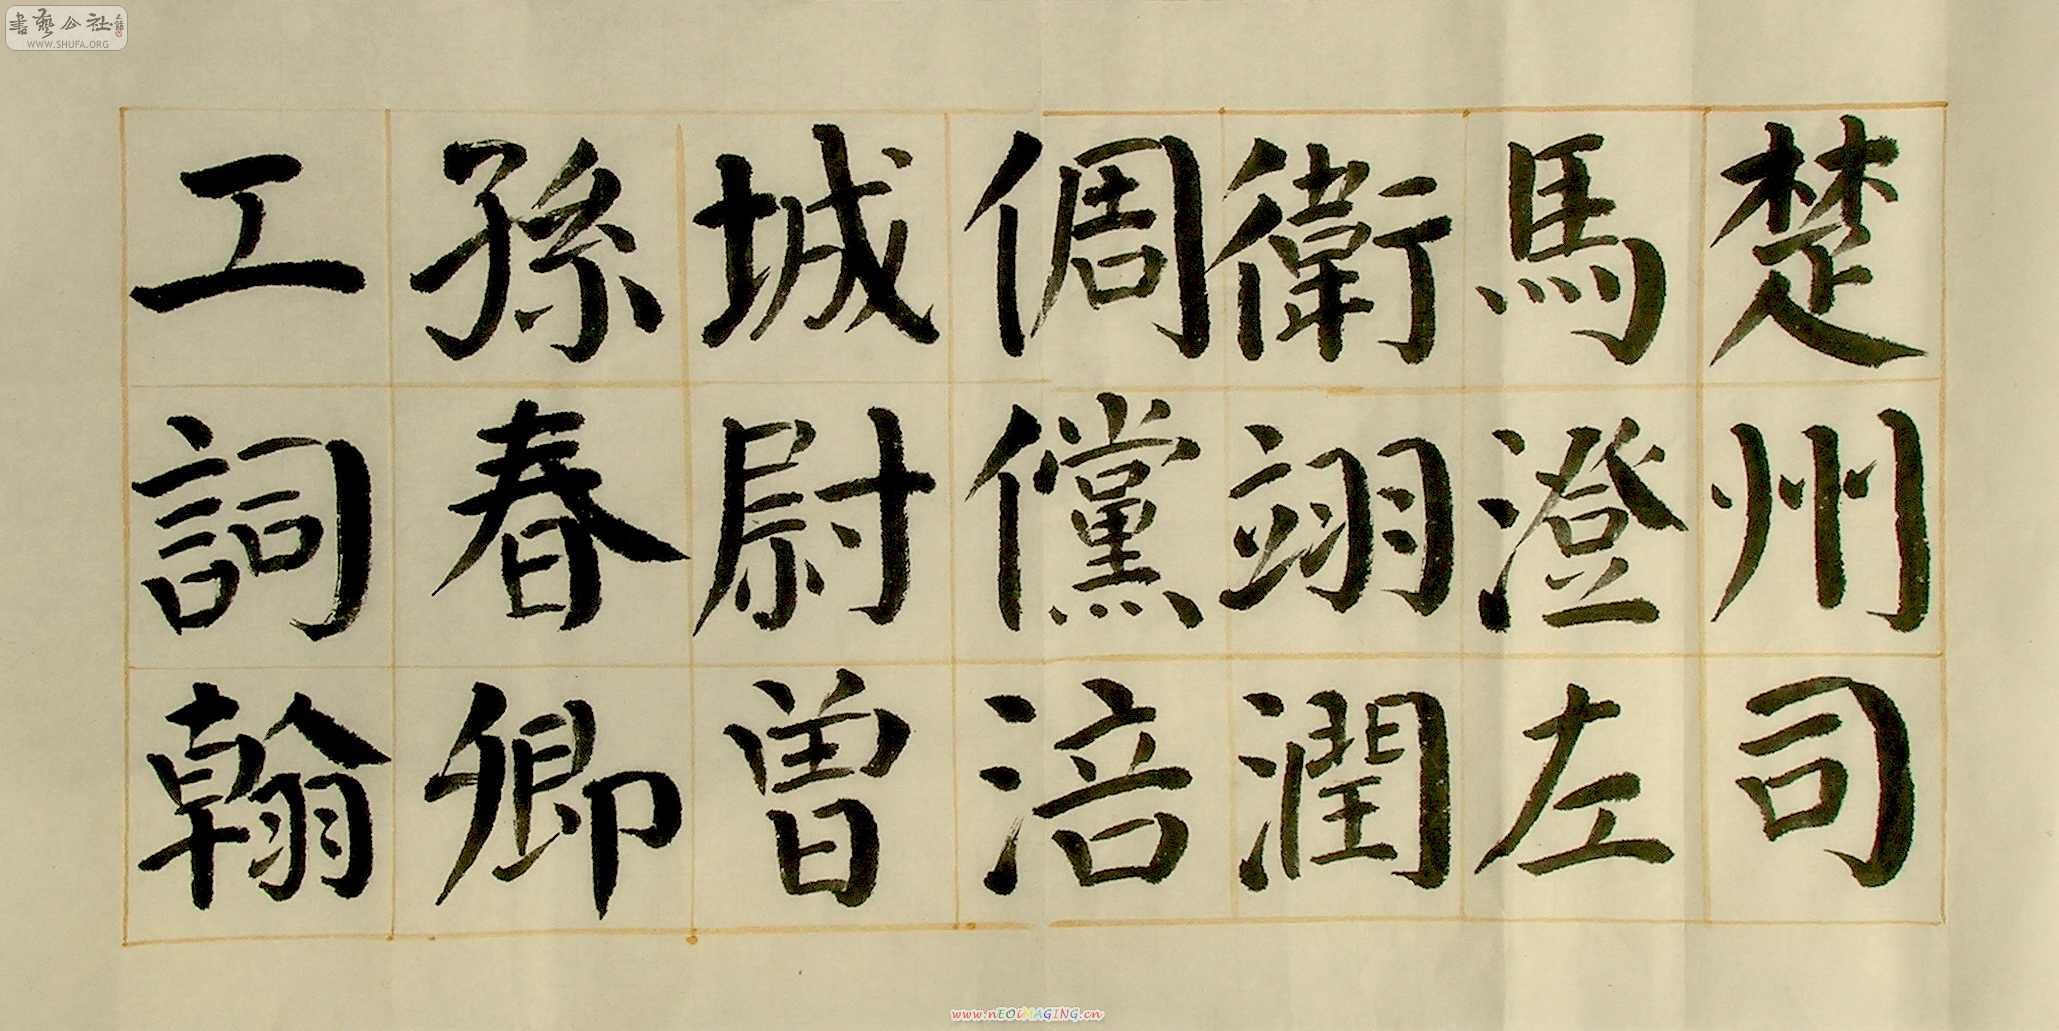 楚州司
馬澄左
衛翊潤
倜儻涪
城尉曾
孫春卿
工詞翰
書藝公社
WWW.SHUFA.ORG
www.nEOiMAGING.cn